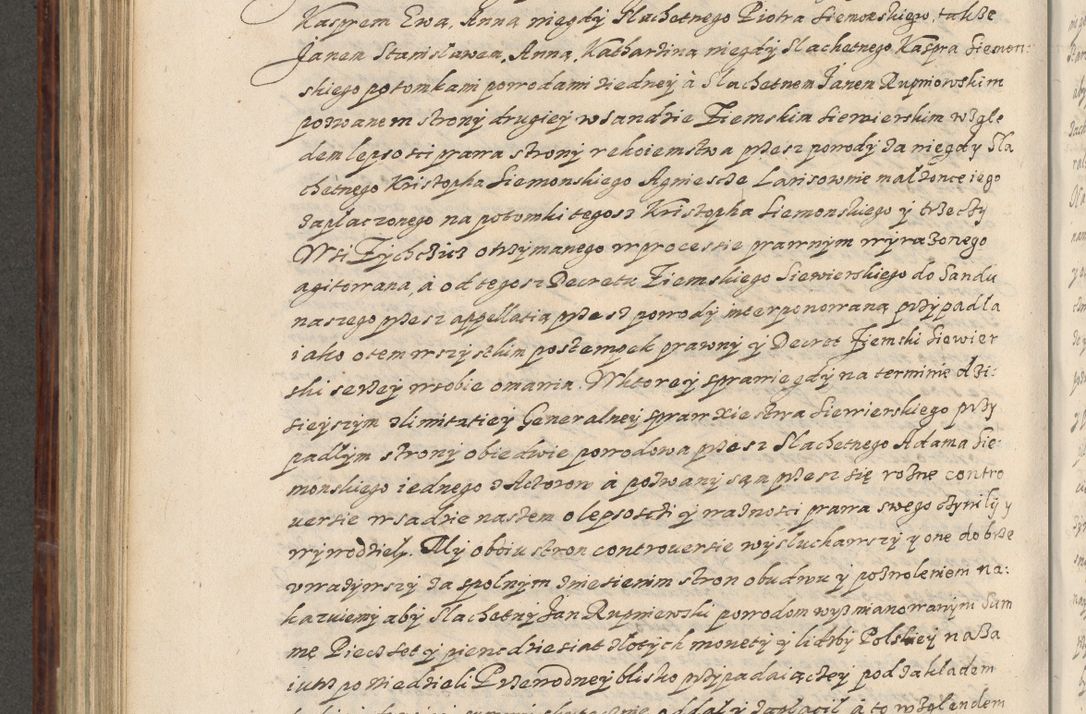 Kasprem Ewą, Anną niegdy Slachetnego Piotra Siemonskiego, także
Janem Stanisławem, Anną, Katharziną niegdy Slachetnego Kaspra Siemon:
skiego potomkami powodami z iedney à Slachetnem Janem Rupniowskim
pozwanem strony drugiey w Sandzie Ziemskim Siewierskim wzglę
dem lepsosci prawa strony rekoiemstwa przesz powody za niegdy Sla
chetnego Kristopha Siemonskiego Agniescze Larisownie małzonce iego
zapłaczonego na potomki tegosz Kristopha Siemonskiego y trzeczy
Wsi Zychczicz otrzymanego w procesie prawnym wyrazonego
agitowana, à od tegosz Decretu Ziemskiego Siewierskiego do Sandu
naszego przesz appellatią przesz powody interponowaną przypadła
iako o tem wszystkim postempek prawny y Decret Ziemski Siewier
ski serzey w sobie omawia. W ktorey sprawie gdy na terminie dzi:
sieyszym z limitatiey Generalney spraw Xiestwa Siewierskiego przy
padłym strony obiedwie powodowa przesz Slachetnego Adama Sie:
monskiego iednego z Actorow à pozwany sam przesz się rożne contro
uersie w sądzie naszem o lepsosczi y ważnosci prawa swego czynili y
wywodzieły. My oboiu stron controuersie wysłuchawszy y one dobrze
vważywszy za spolnym zniesieniem stron obudwu y pozwoleniem na:
kazuiemy aby Slachetny Jan Rupniewski powodom wyzmianowanym Sum
mę Piecz set y piencdziesiat złotych monety y liczby Polskiey na Za
iutrz po Niedzieli Przewodney blisko przypadaiączey pod zakładem
oddał y zapłacił à to względem